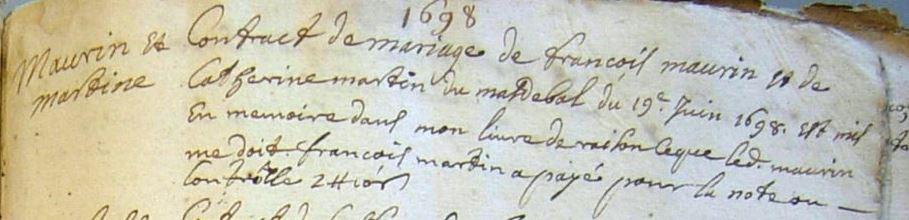 1698
Maurin et
martine
Contract de mariage de francois maurin et de
Catherine martin du masdebal du 19e Juin 1698. Est mis
En memoire dans mon livre de raison Ceque led. maurin
me doit. francois martin a payé pour la note ou
Controlle 2#